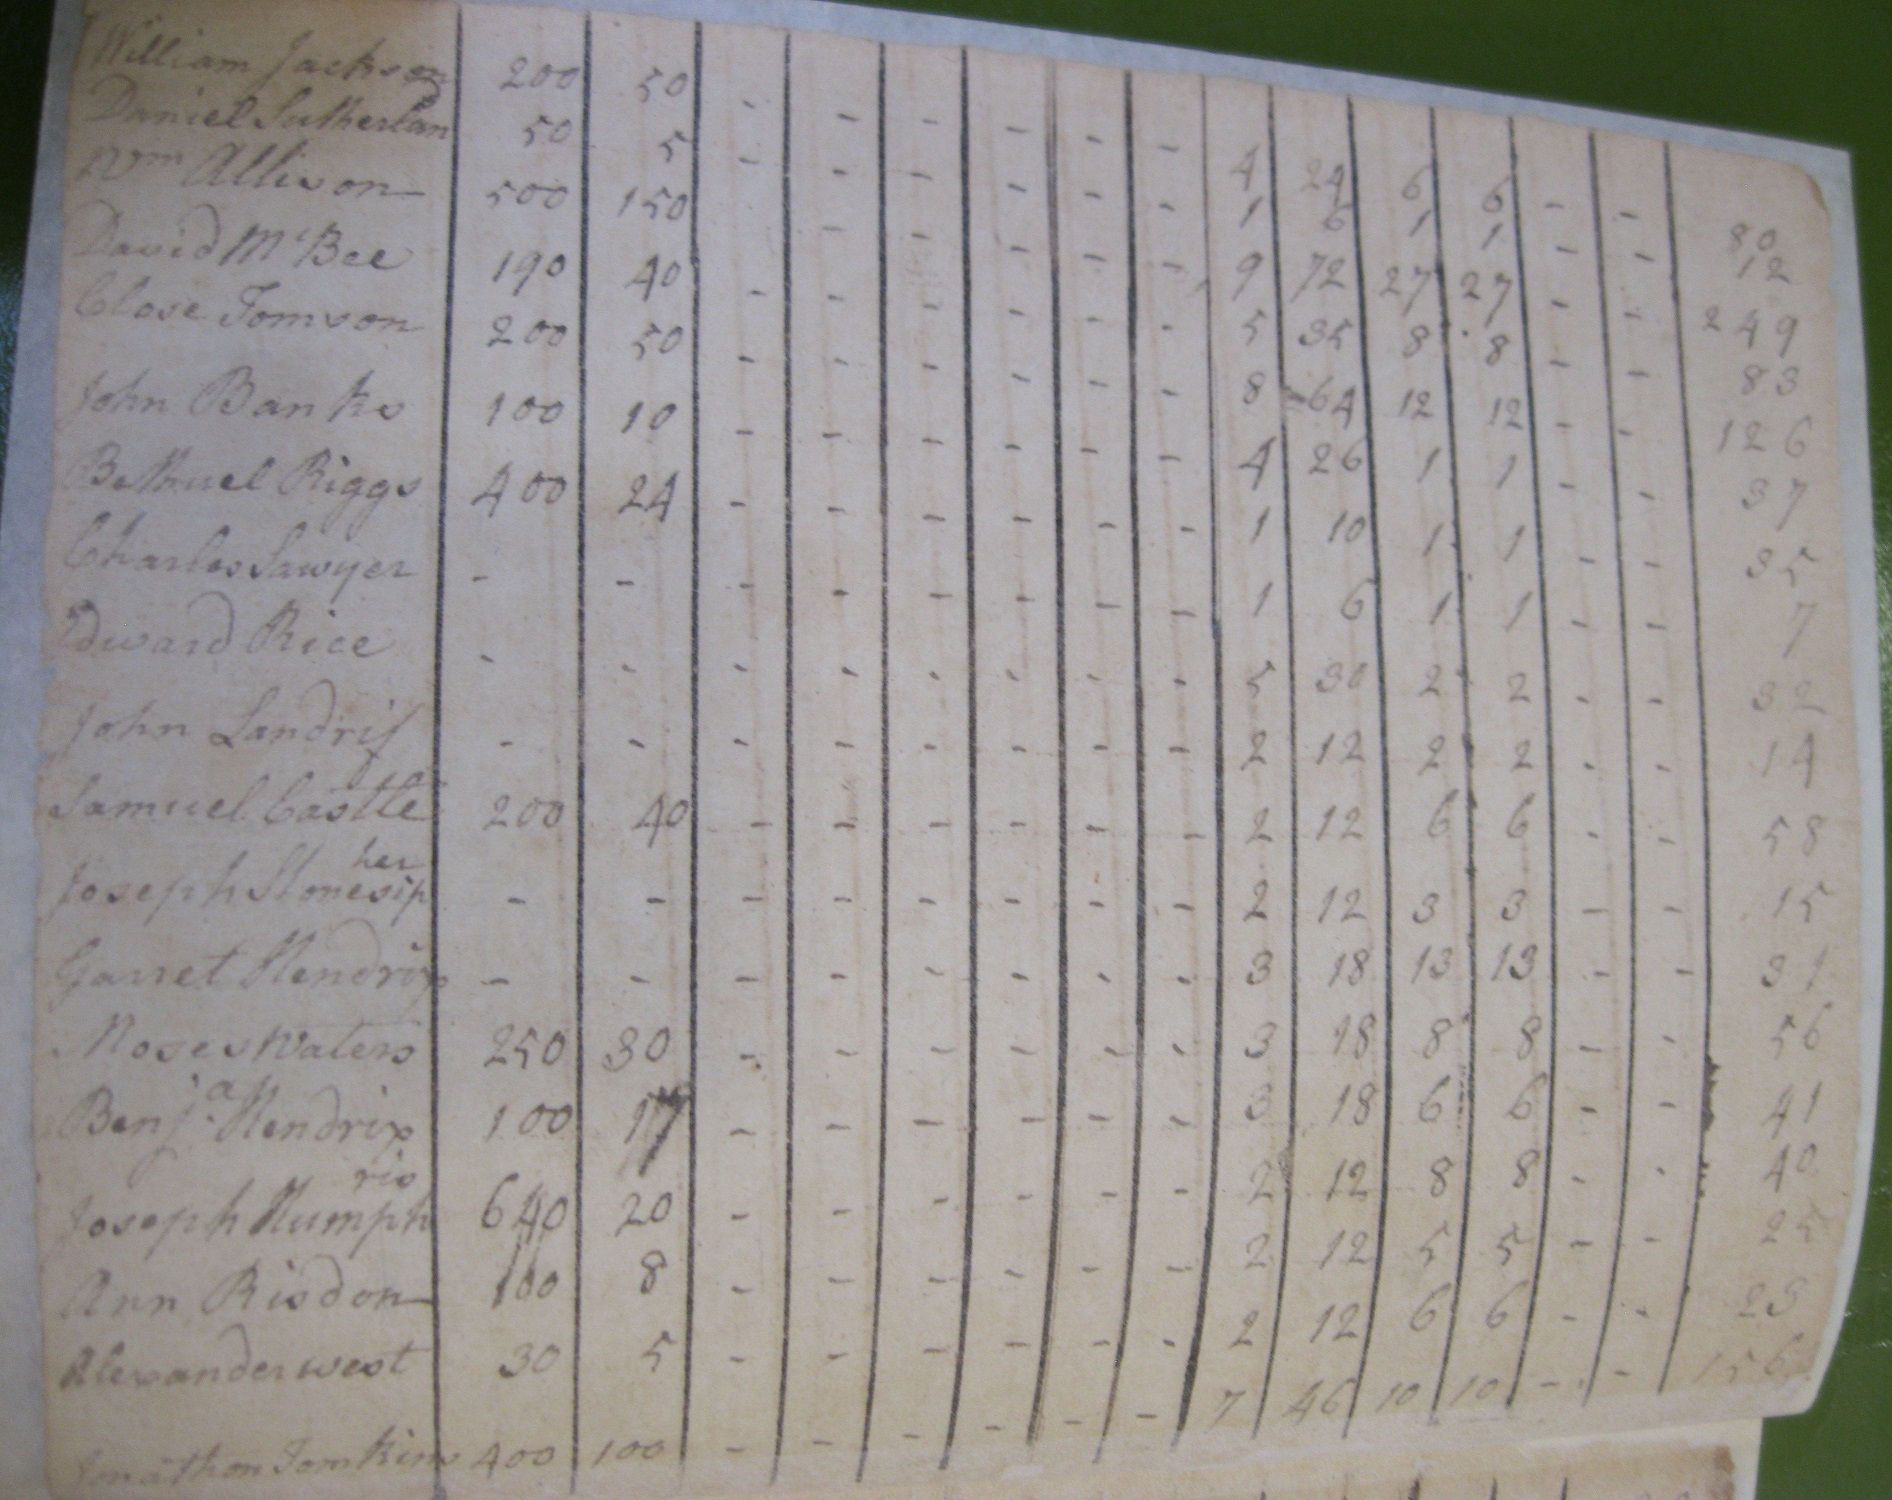 William Jackson 200 50 - - - - - - 4 24 6 6 - - 80
Daniel Sutherland 50 5 - - - - - - 1 6 1 1 - - 12
Wm Allison 500 150 - - - - - - 9 72 27 27 - - 249
David McBee 190 40 - - - - - - 5 35 8 8 - - 83
Close Tomson 200 50 - - - - - - 8 64 12 12 - - 126
John Banks 100 10 - - - - - - 4 26 1 1 - - 37
Bethuel Riggs 400 24 - - - - - - 1 10 1 1 - - 35
Charles Sawyer - - - - - - - - 1 6 1 1 - - 7
Edward Rice - - - - - - - - 5 30 2 2 - - 32
John Landrif - - - - - - - - 2 12 2 2 - - 14
Samuel Castle 200 40 - - - - - - 2 12 6 6 - - 58
Joseph Stonesipher - - - - - - - - 2 12 3 3 - - 15
Garret Hendrix - - - - - - - - 3 18 13 13 - - 31
Moses Waters 250 30 - - - - - - 3 18 8 8 - - 56
Benja. Hendrix 100 17 - - - - - - 3 18 6 6 - - 41
Joseph Humphris 640 20 - - - - - - 2 12 8 8 - - 40
Ann Risdon 100 8 - - - - - - 2 12 5 5 - - 25
Alexander west 30 5 - - - - - - 2 12 6 6 - - 23
Jonathon Tomkins 400 100 - - - - - - 7 46 10 10 - - 156